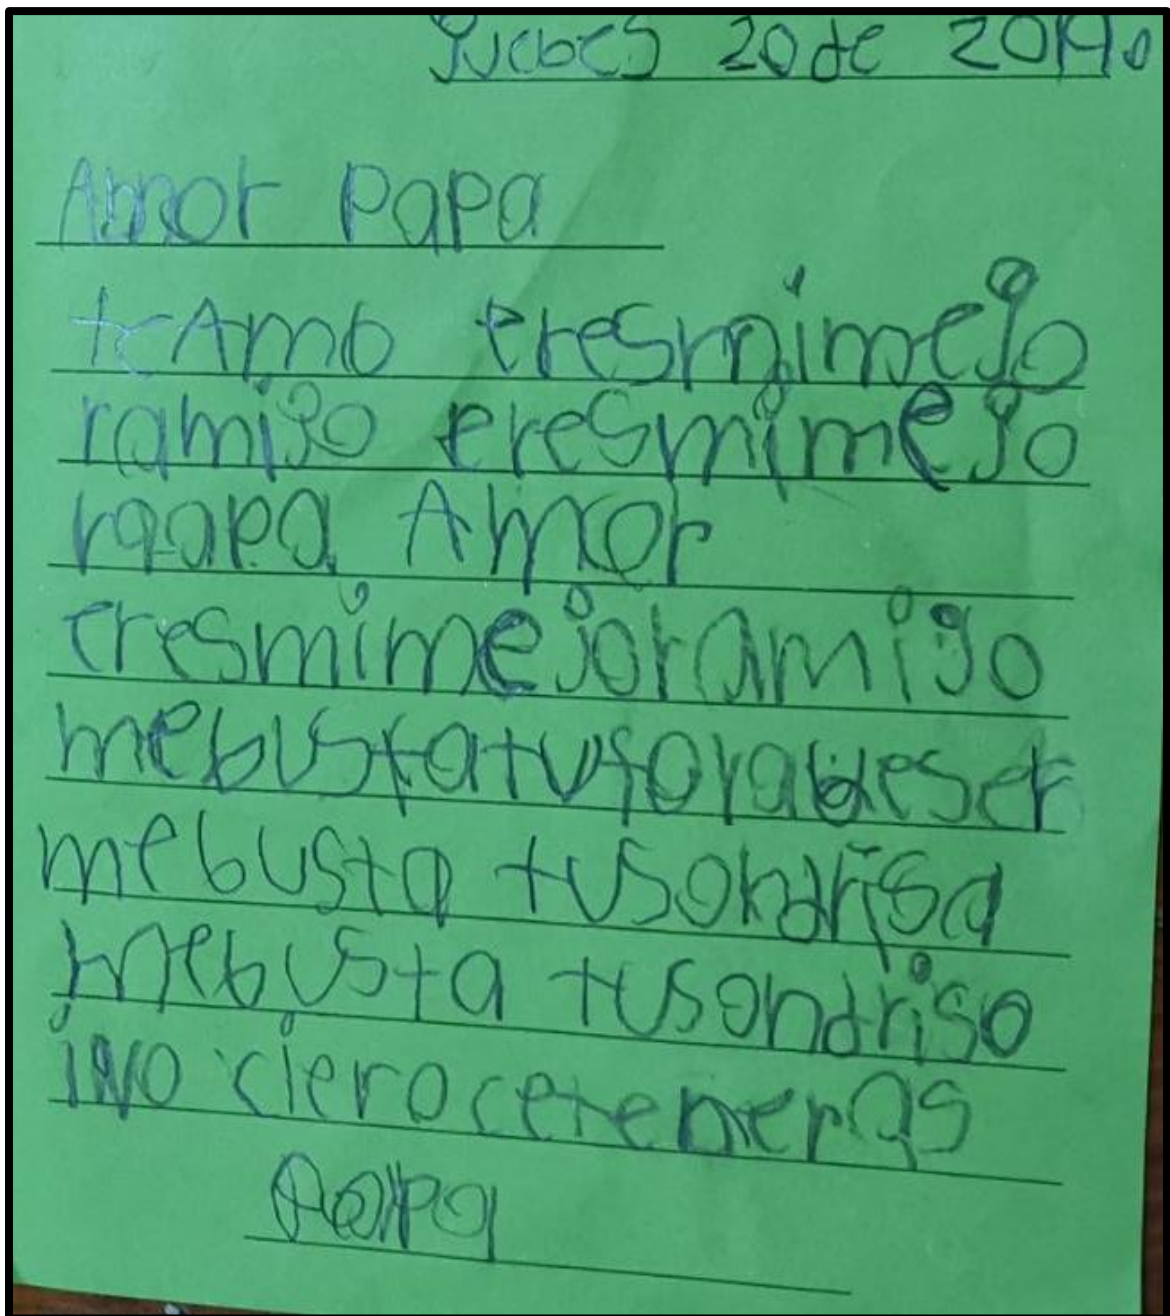 Juebes 20 de 2019.
Amor papa
te Amo eresmimejo
ramigo eresmimejo
rpapa Amor
eresmimejoramigo
mebustatuforadeser
mebusta tusondrisa
mebusta tusondriso
ino cierocetemeras
papa